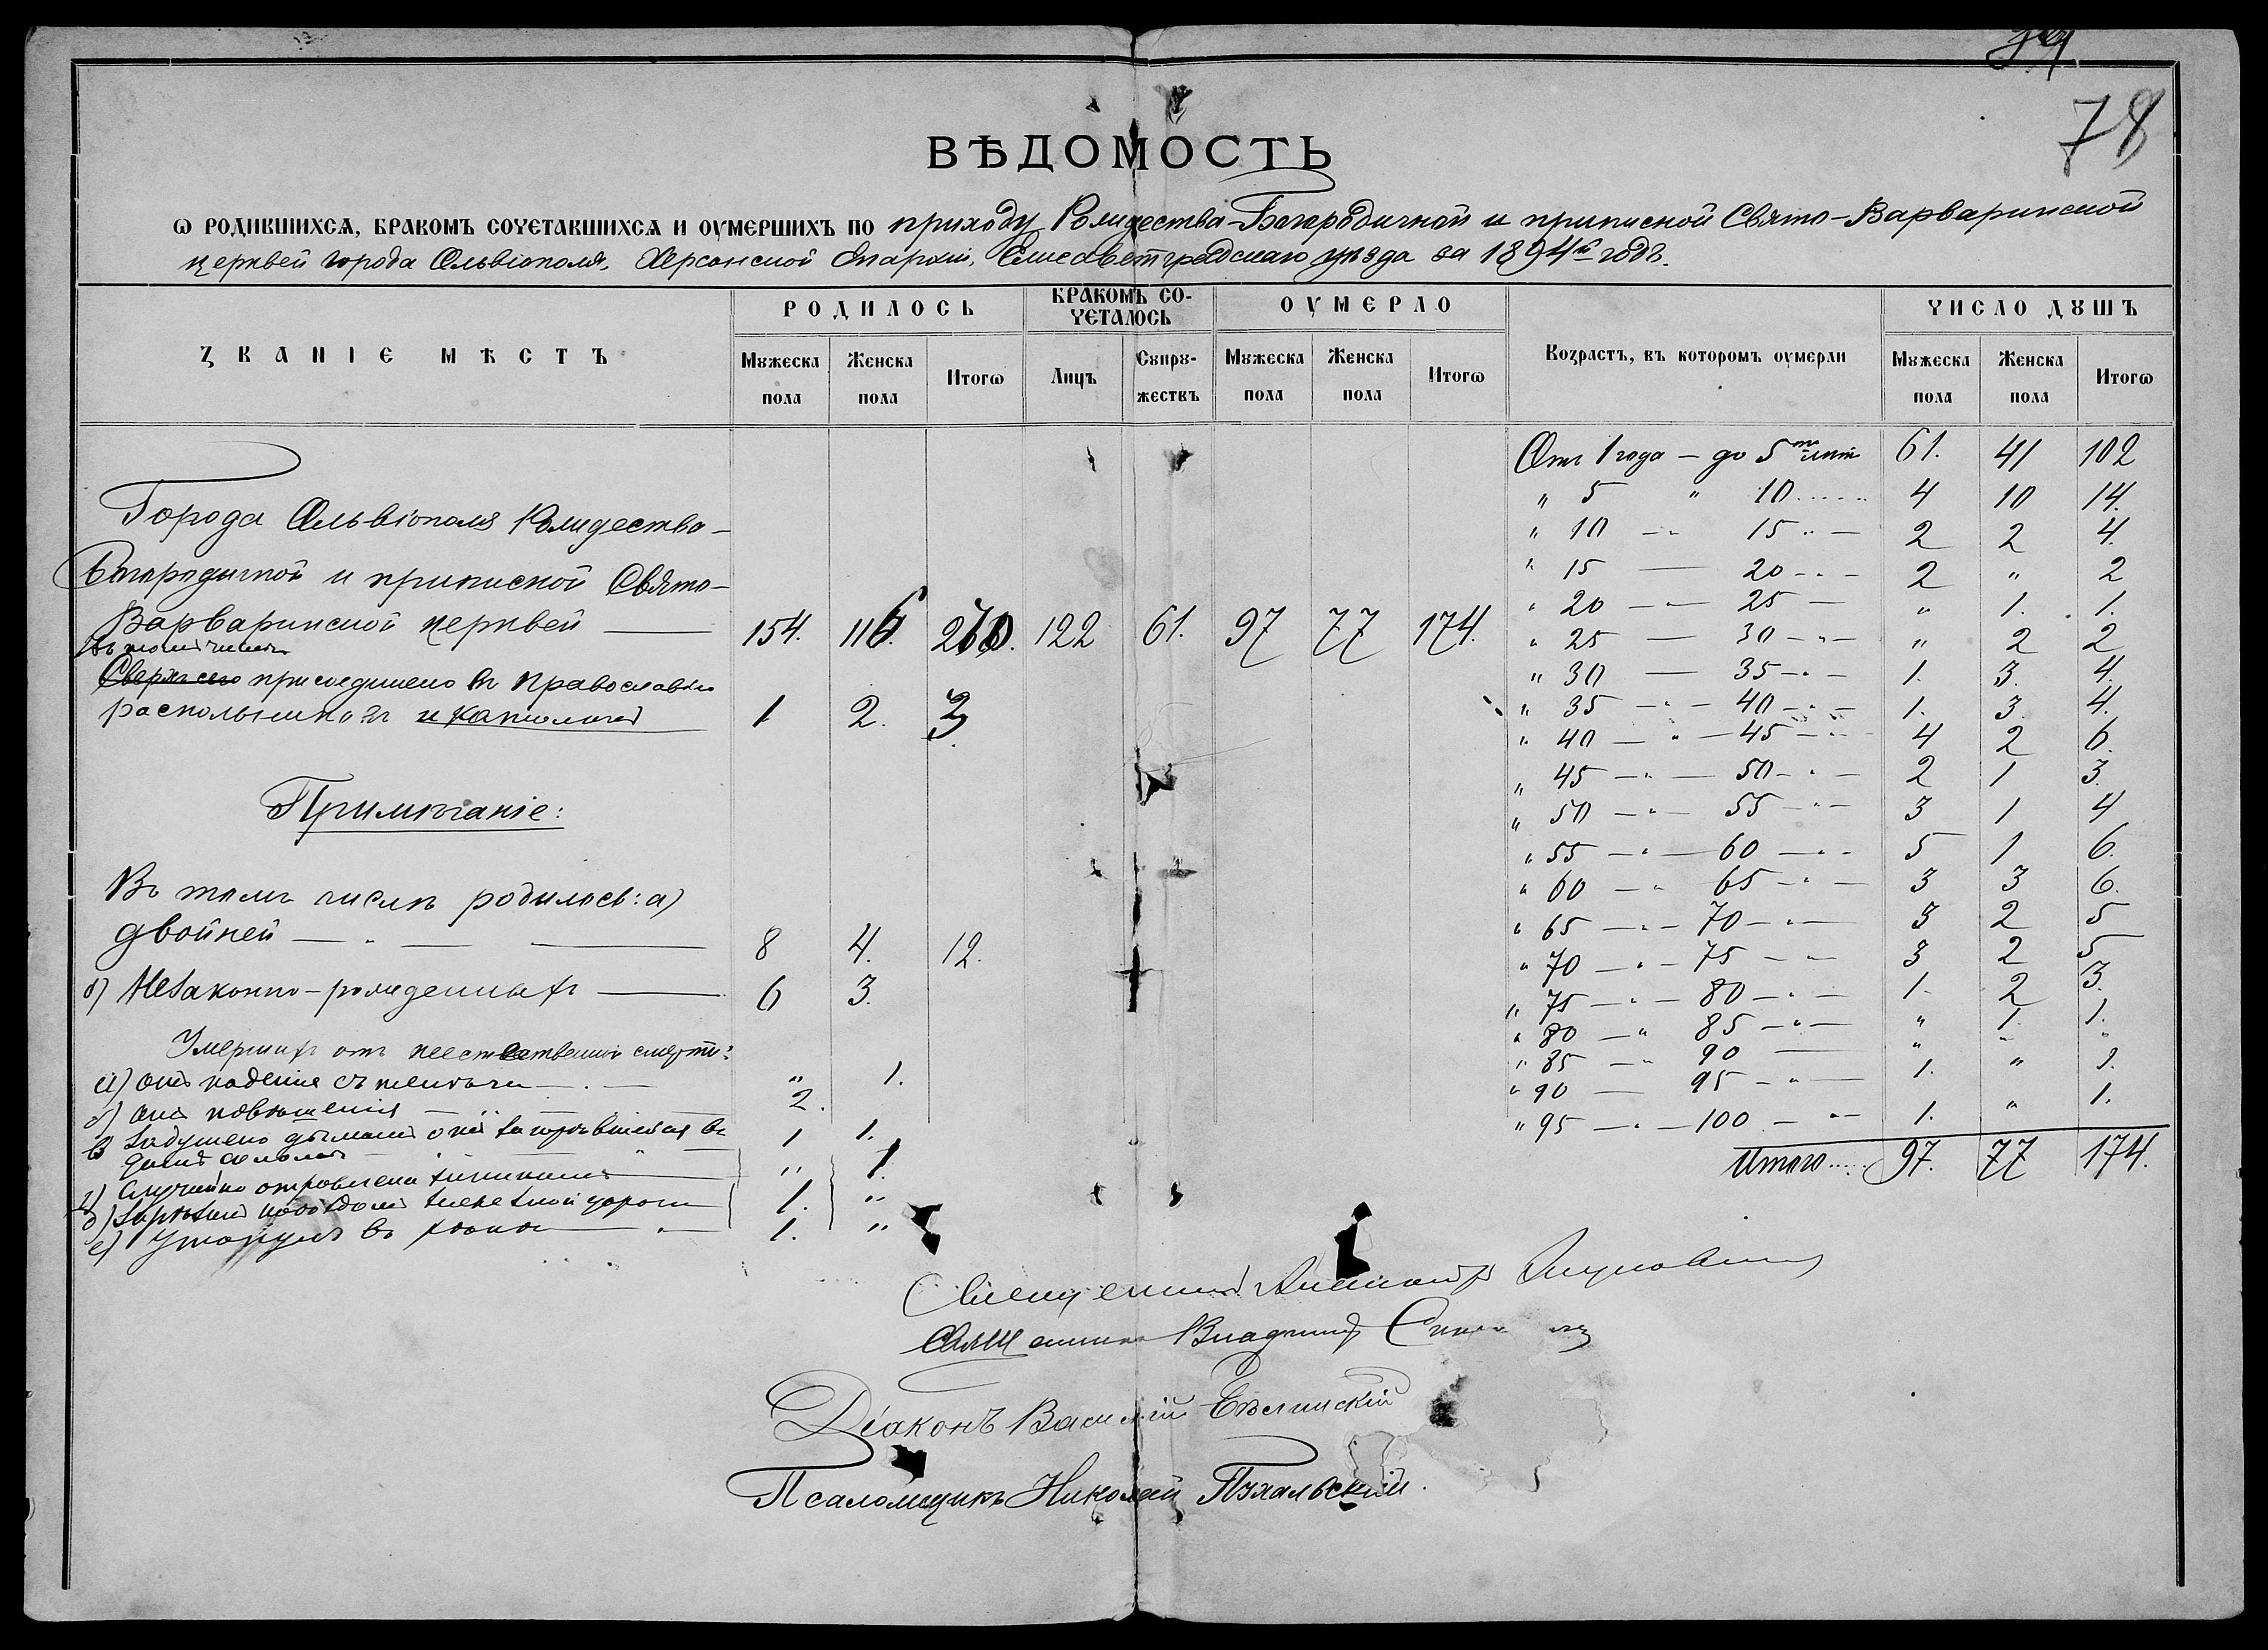 78
ВѢДОМОСТЬ
Ѡ РОДИВШИХСѦ, БРАКОМЪ СОЧЕТАВШИХСѦ И ОУМЕРШИХЪ ПО приходу Рождества-Богородичной и приписной Свято-Варваринской
церквей города Ольвіополя, Херсонской Епархіи, Елисаветградскаго уѣзда за 1894й годъ.
ЗВАНІЕ МѢСТЪ
РОДИЛОСЬ
БРАКОМЪ СО-
ЧЕТАЛОСЬ
ОУМЕРЛО
Возрастъ, въ которомъ оумерли
ЧИСЛО ДꙊШЪ
Мꙋжеска пола
Женска пола
Итогѡ
Лицъ
Сꙋпрꙋ-
жествъ
Мꙋжеска пола
Женска пола
Итогѡ
Мꙋжеска пола
Женска пола
Итогѡ
Города Ольвіополя Рождество-
Богородичной и приписной Свято-
Варваринской церквей — 154. 116. 270. 122 61. 97 77 174.
Въ томъ числѣ
Сверхъ сего присоединено къ Православію
раскольниковъ и католиковъ 1 2. 3.
Примѣчаніе:
Въ томъ числѣ родилось: а)
двойней — „ — — 8 4. 12.
б) Незаконно-рожденныхъ — 6 3.
Умершихъ отъ неестественной смерти:
а) отъ паденія съ — . — „ 1.
б) отъ повѣшенія — 2.
в) Задушено дымомъ отъ загорѣвшейся въ 1 1.
домѣ соломы
г) Случайно отравлена „ 1.
д) Зарѣзанъ поѣздомъ желѣзной дороги 1. „
е) Утонулъ въ — „ — 1. „
Отъ 1 года — до 5ти лѣтъ 61. 41 102
„ 5 „ 10...... 4 10 14.
„ 10 — „ 15 „ — 2 2 4.
„ 15 — 20 - „ - 2 „ 2
„ 20 — „ — 25 — „ 1. 1.
„ 25 — 30 - „ - „ 2 2
„ 30 — 35 - „ - 1. 3. 4.
„ 35 — „ — 40 - „ - 1. 3. 4.
„ 40 — „ — 45 - „ - 4 2 6.
„ 45 — „ — 50 - „ - 2 1 3.
„ 50 — „ — 55 - „ - 3 1 4
„ 55 — „ — 60 — „ - 5 1 6.
„ 60 — „ 65 - „ - 3 3 6.
„ 65 — „ — 70 - „ - 3 2 5
„ 70 — „ — 75 - „ - 3 2 5
„ 75 — „ — 80 - „ - 1. 2 3.
„ 80 — „ 85 - „ - „ 1. 1.
„ 85 — „ 90 — „ „ „
„ 90 — 95 - „ - 1. „ 1.
„ 95 — „ — 100 — „ — 1. „ 1.
Итого...... 97. 77 174.
Священникъ Александръ
Священникъ Владиміръ
Діаконъ Василій Бѣлинскій
Псаломщикъ Николай Пухальскій.